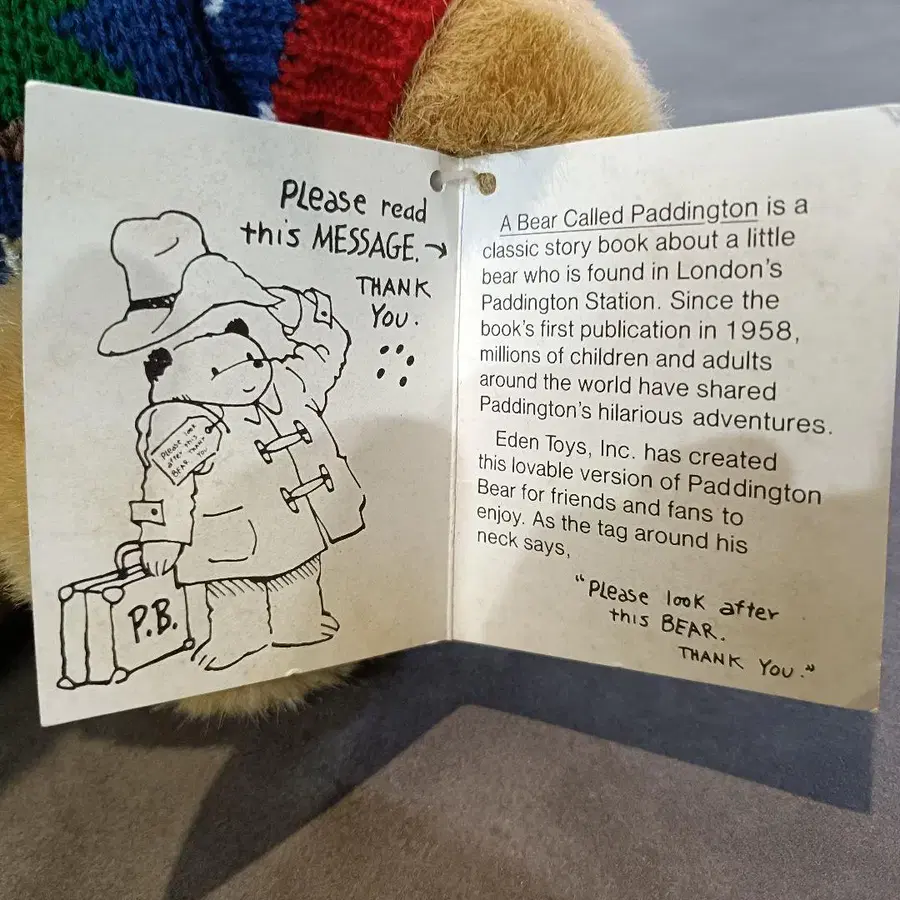 Please read
this MESSAGE. →
THANK
YOU.
Please look
after this
BEAR THANK
YOU
P.B.
A Bear Called Paddington is a
classic story book about a little
bear who is found in London's
Paddington Station. Since the
book's first publication in 1958,
millions of children and adults
around the world have shared
Paddington's hilarious adventures.
Eden Toys, Inc. has created
this lovable version of Paddington
Bear for friends and fans to
enjoy. As the tag around his
neck says,
"Please look after
this BEAR.
THANK YOU."